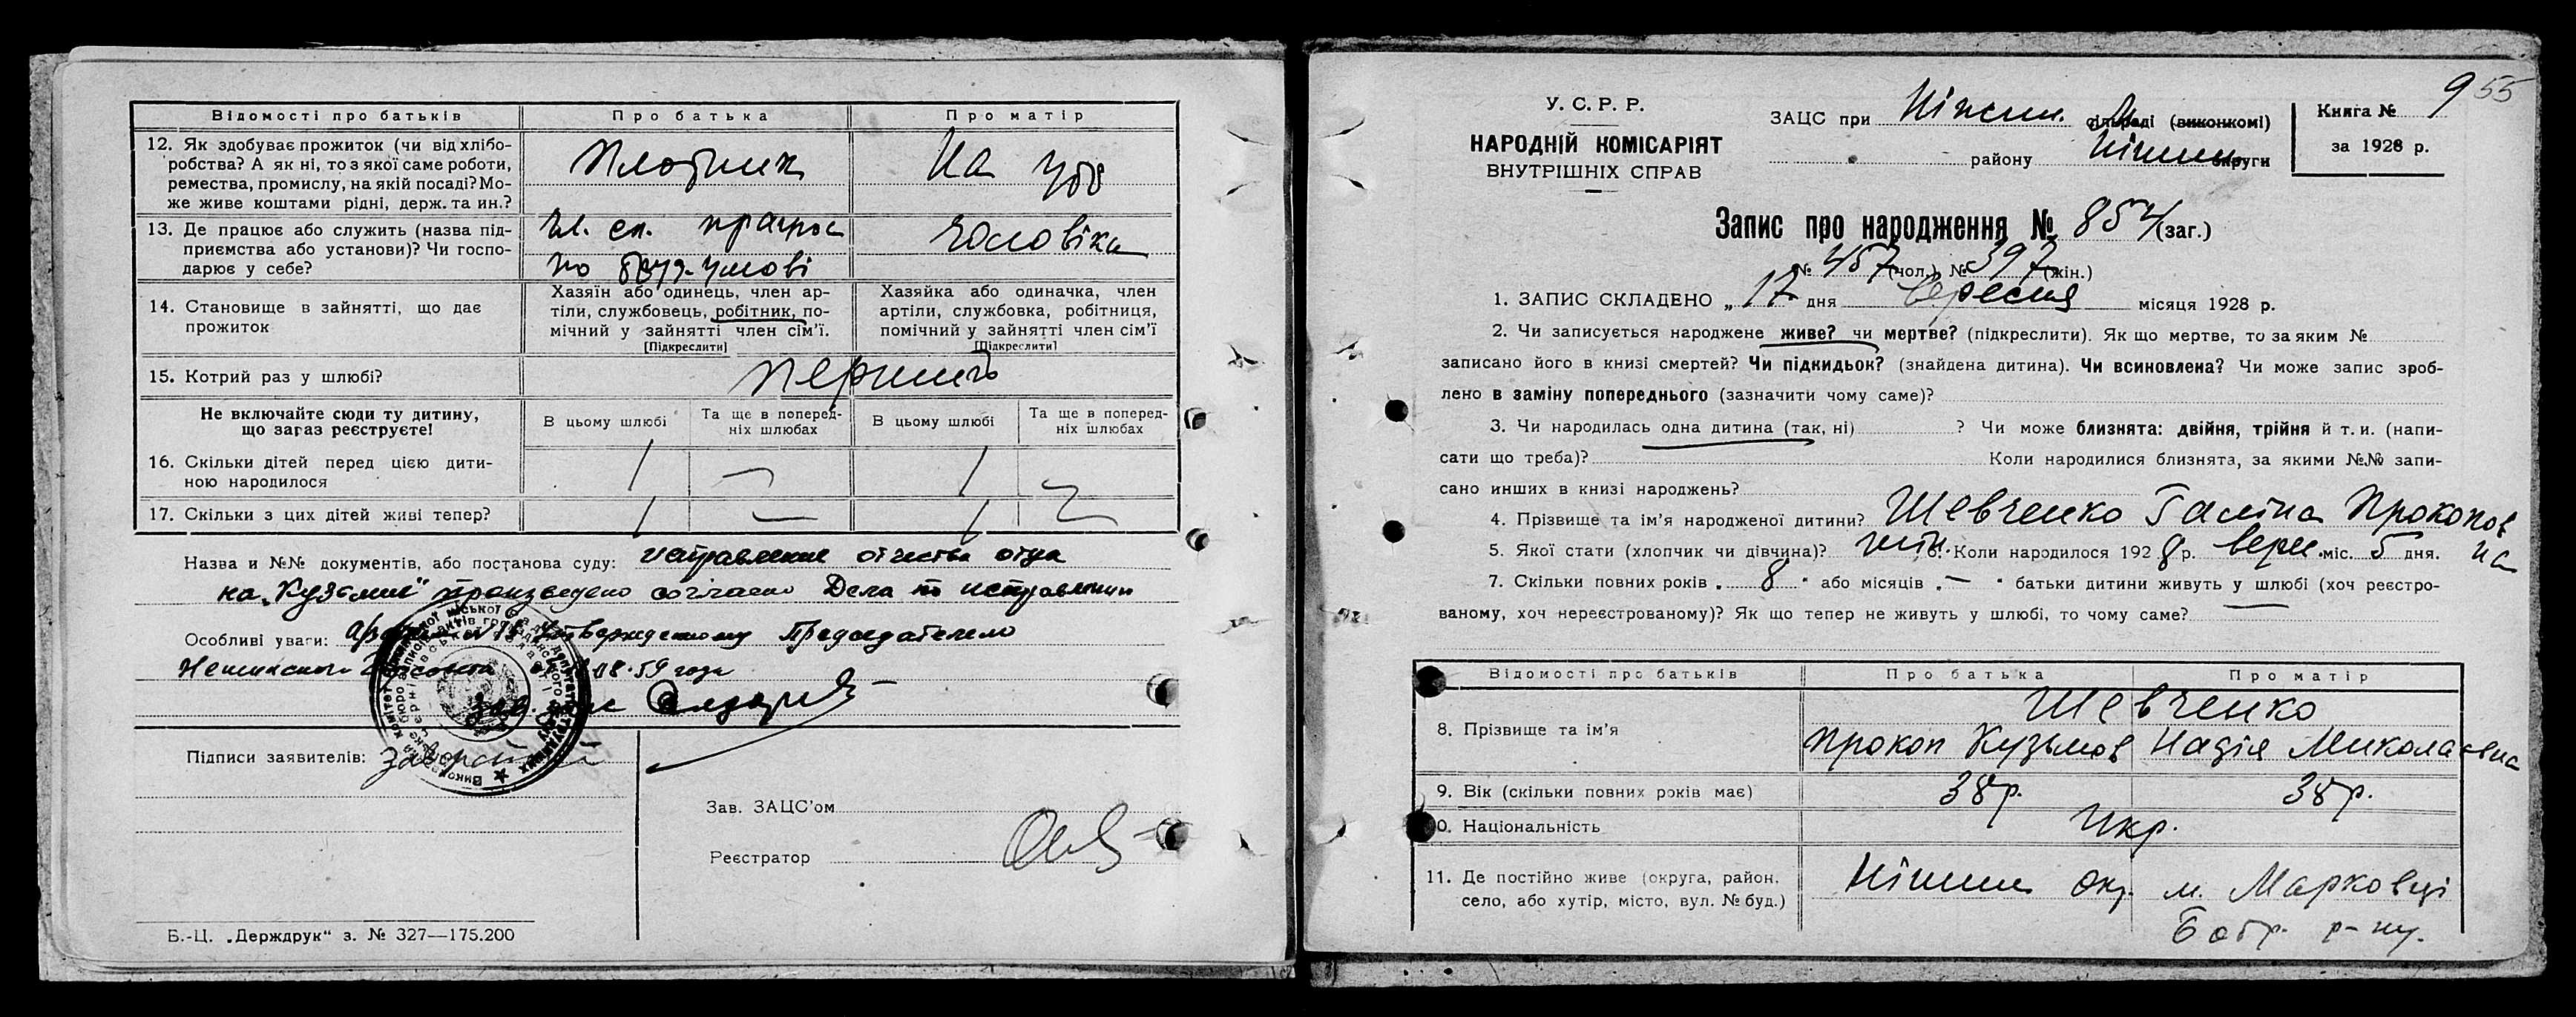 Відомості про батьків Про батька Про матір
12. Як здобуває прожиток (чи від хлібо-
робства? А як ні, то з якої саме роботи,
ремества, промислу, на якій посаді? Мо-
же живе коштами рідні, держ. та ин.?
Плотник На утр
13. Де працює або служить (назва під-
приємства або установи)? Чи госпо-
дарює у себе?
чл. сп.
по умові
чоловіка
14. Становище в зайнятті, що дає
прожиток
Хазяїн або одинець, член ар-
тіли, службовець, робітник, по-
мічний у зайнятті член сім'ї.
[Підкреслити]
Хазяйка або одиначка, член
артіли, службовка, робітниця,
помічний у зайнятті член сім'ї
[Підкреслити]
15. Котрий раз у шлюбі? перший
Не включайте сюди ту дитину,
що зараз реєструєте!
В цьому шлюбі
Та ще в поперед-
ніх шлюбах
В цьому шлюбі
Та ще в поперед-
ніх шлюбах
16. Скільки дітей перед цією дити-
ною народилося
1 — 1 —
17. Скільки з цих дітей живі тепер? 1 — 1 —
Назва и №№ документів, або постанова суду: исправление отчества отца
на „Кузьмич" произведено согласно Дела по исправлении
Особливі уваги: утвержденному Председателем
Нежинского 08.59 года
Підписи заявителів:
Зав. ЗАЦС'ом
Реєстратор
Б.-Ц. „Держдрук" з. № 327—175.200
955
У. С. Р. Р.
НАРОДНІЙ КОМІСАРІЯТ
ВНУТРІШНІХ СПРАВ
ЗАЦС при Ніжин. сільраді (виконкомі)
району Ніжин округи
Книга № 9
за 1928 р.
Запис про народження № 854 (заг.)
№ 457 (чол.) № 397 (жін.)
1. ЗАПИС СКЛАДЕНО „17 дня вересня місяця 1928 р.
2. Чи записується народжене живе? чи мертве? (підкреслити). Як що мертве, то за яким №
записано його в книзі смертей? Чи підкидьок? (знайдена дитина). Чи всиновлена? Чи може запис зроб-
лено в заміну попереднього (зазначити чому саме)?
3. Чи народилась одна дитина (так, ні) ? Чи може близнята: двійня, трійня й т. и. (напи-
сати що треба)? Коли народилися близнята, за якими №№ запи-
сано инших в книзі народжень?
4. Прізвище та ім'я народженої дитини? Шевченко Галіна Прокопов
на
5. Якої стати (хлопчик чи дівчина)? жін. 6. Коли народилося 1928 р. верес. міс. 5 дня.
7. Скільки повних років „ 8 " або місяців „ — " батьки дитини живуть у шлюбі (хоч реєстро-
ваному, хоч нереєстрованому)? Як що тепер не живуть у шлюбі, то чому саме?
Відомості про батьків Про батька Про матір
8. Прізвище та ім'я
Шевченко
Прокоп Кузьмов Надія Миколаєвна
9. Вік (скільки повних років має) 38 р. 38 р.
10. Національність Укр.
11. Де постійно живе (округа, район,
село, або хутір, місто, вул. № буд.)
Ніжин окр. м. Марковці
Бобр. р-ну.